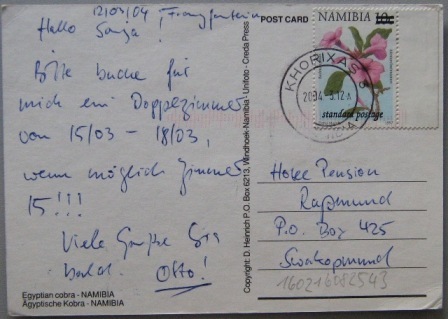 12/03/04, Franzfontein
Hallo Sonja!
Bitte buche für
mich ein Doppelzimmer
vom 15/03 - 18/03,
wenn möglich Zimmer
15!!!
Viele Grüße bis
bald. Otto!
Egyptian cobra - NAMIBIA
Ägyptische Kobra - NAMIBIA
Copyright: D. Heinrich P.O. Box 6213, Windhoek-Namibia - Unifoto - Creda Press
POST CARD
NAMIBIA
standard postage
KHORIXAS
2004 -3.12
Hotel Pension
Rapmund
P.O. Box 425
Swakopmund
160216082543